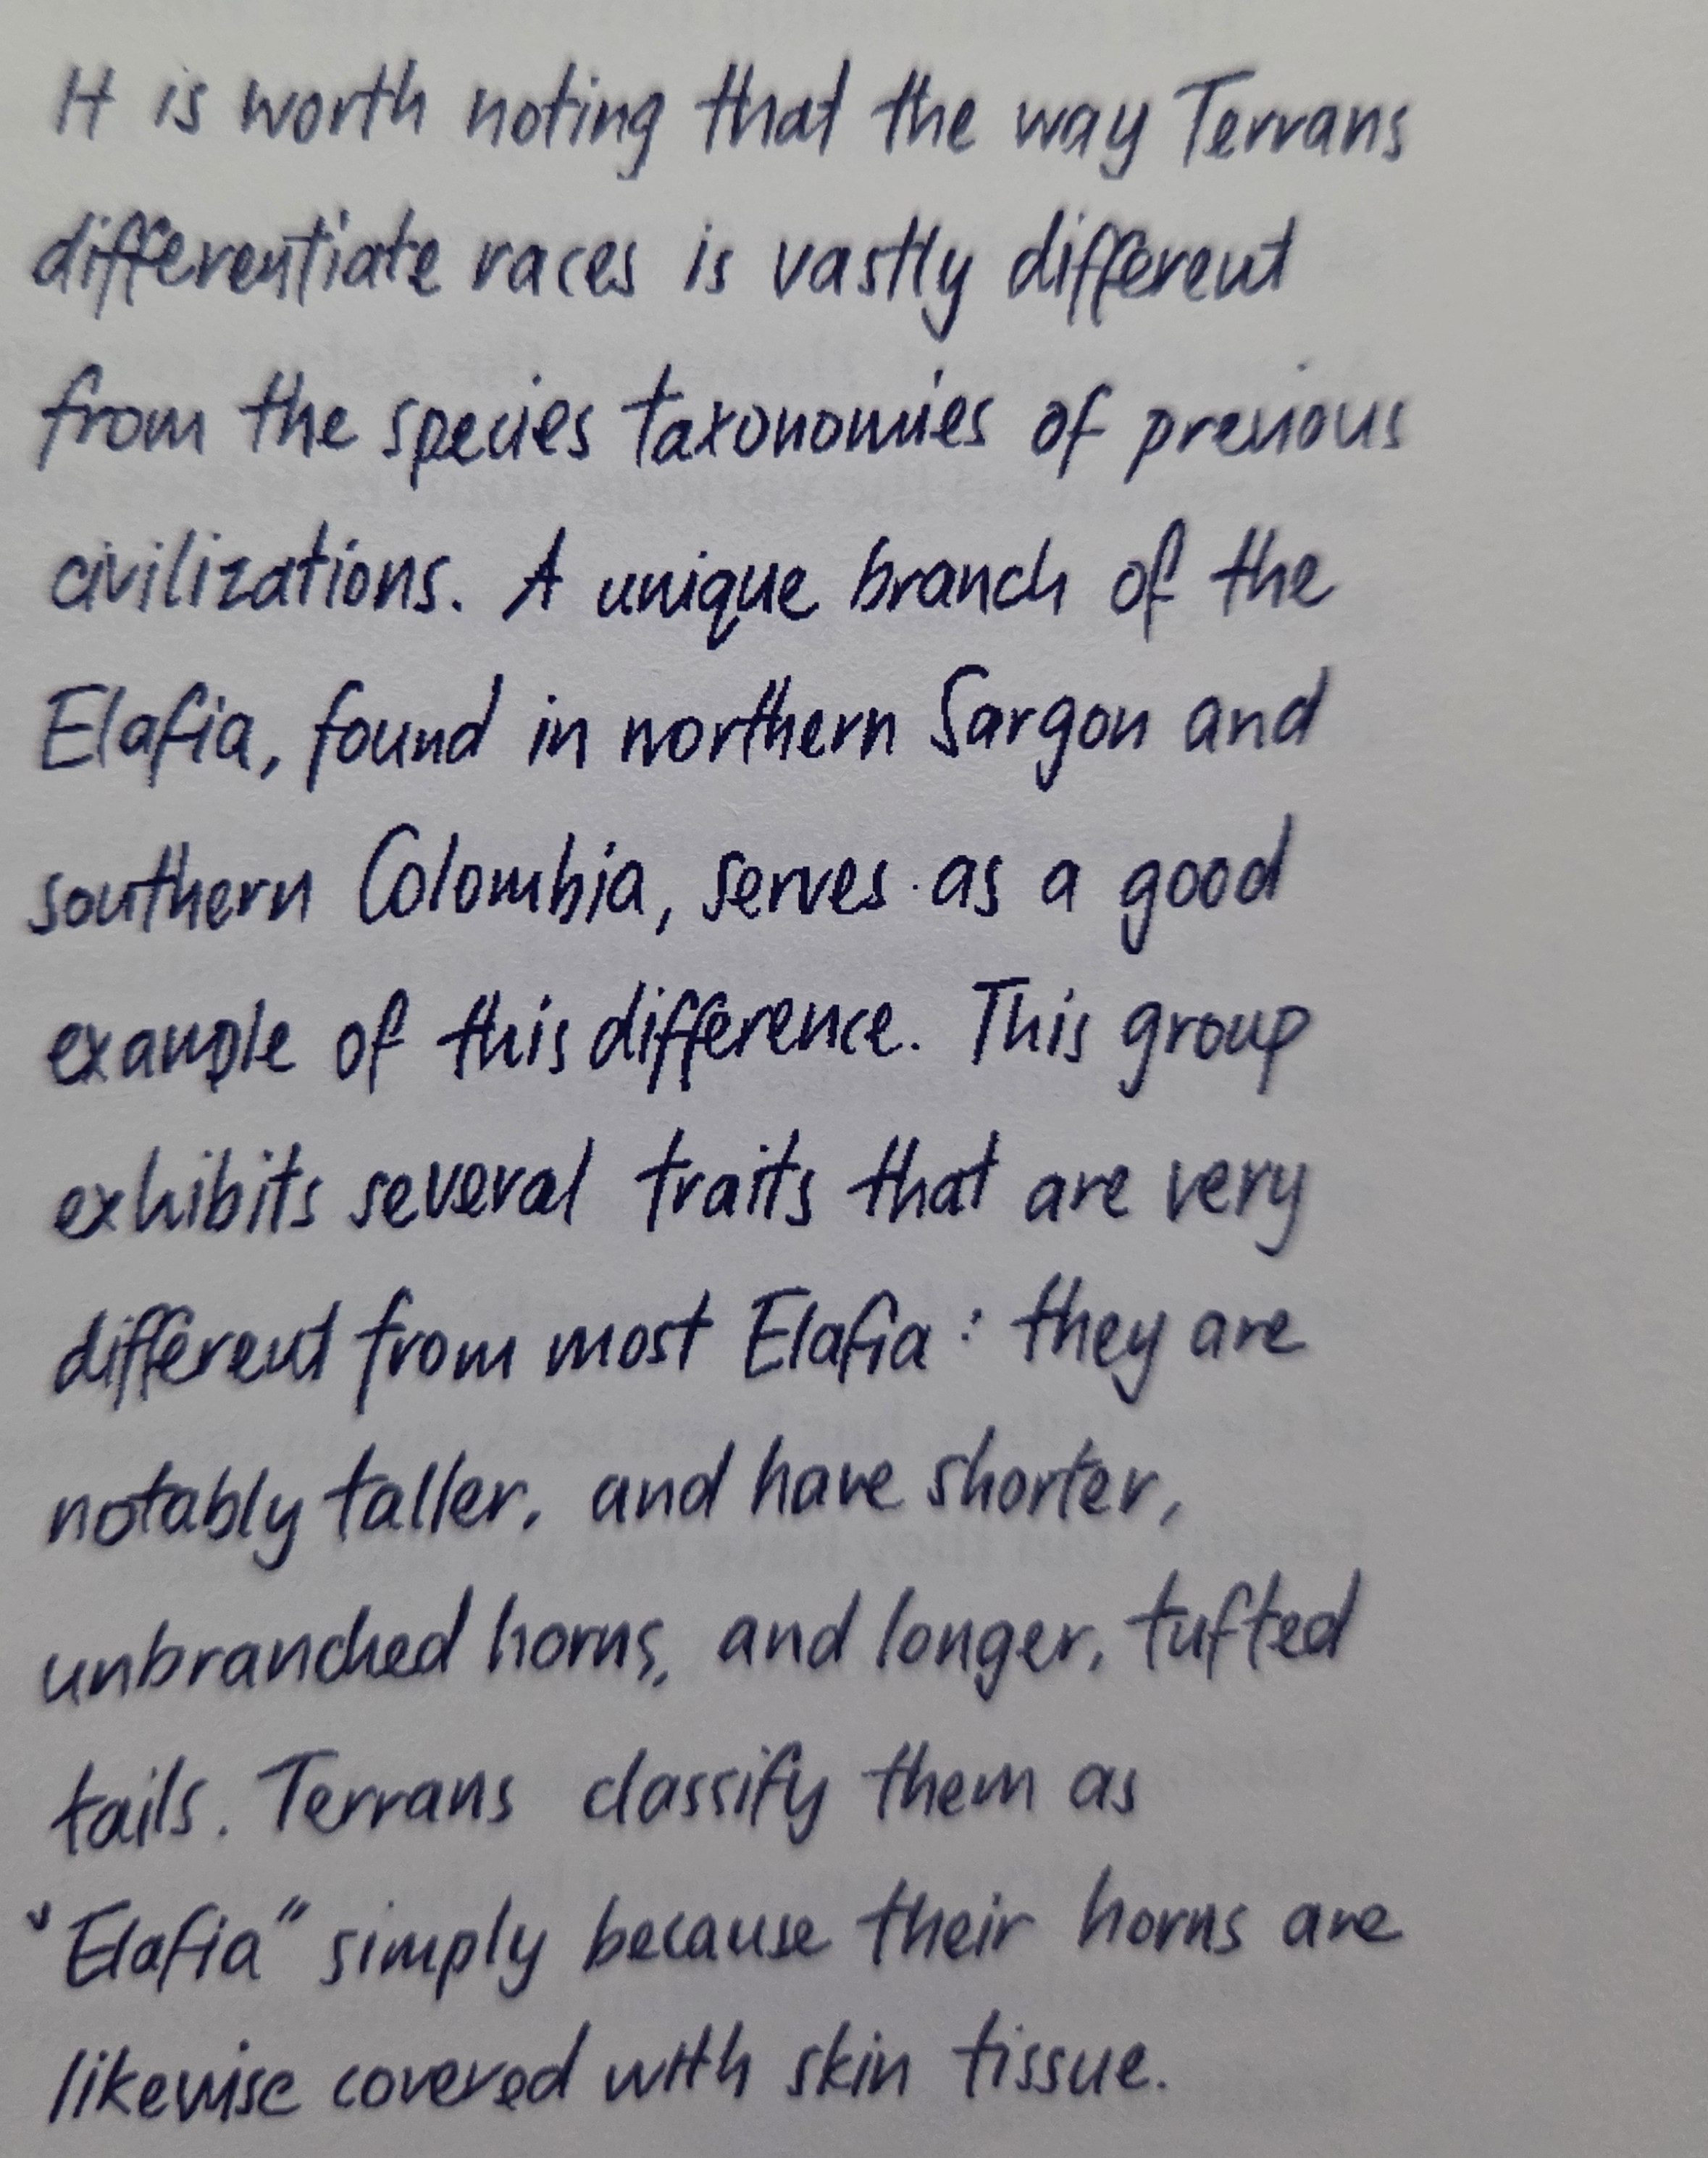 It is worth noting that the way Terrans
differentiate races is vastly different
from the species taxonomies of previous
civilizations. A unique branch of the
Elafia, found in northern Sargon and
southern Colombia, serves as a good
example of this difference. This group
exhibits several traits that are very
different from most Elafia: they are
notably taller, and have shorter,
unbranched horns, and longer, tufted
tails. Terrans classify them as
"Elafia" simply because their horns are
likewise covered with skin tissue.